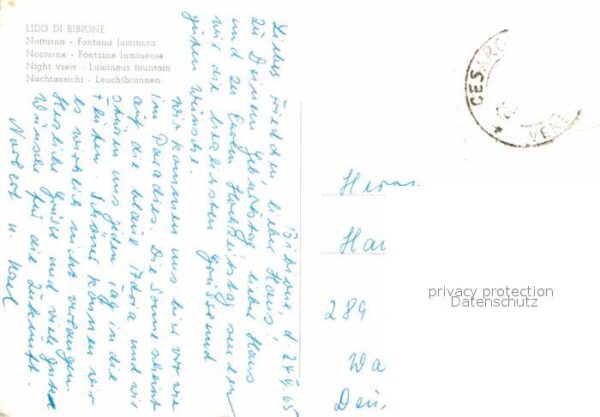 LIDO DI BIBIONE
Notturno - Fontana luminosa
Nocturne - Fontaine lumineuse
Night view - Luminous fountain
Nachtansicht - Leuchtbrunnen
Bibione, d. 24. 65
lieber Hans!
Zu Deinem Geburtstag lieber Hans
und zu Eurem Hochzeitstag senden
wir die herzlichsten Grüsse und
guten Wünsche.
Wir kommen uns hier vor wie
im Paradies. Die Sonne scheint
auf die blaue Adria und wir
uns jeden Tag in die
Fluten. Schöner können wir
es wirklich nicht verlangen.
Herzliche Grüsse und viele gute
Wünsche für die Zukunft.
Norbert u.
CESARO
VENE
Herrn
Ha
289
Wa
Deu
privacy protection
Datenschutz